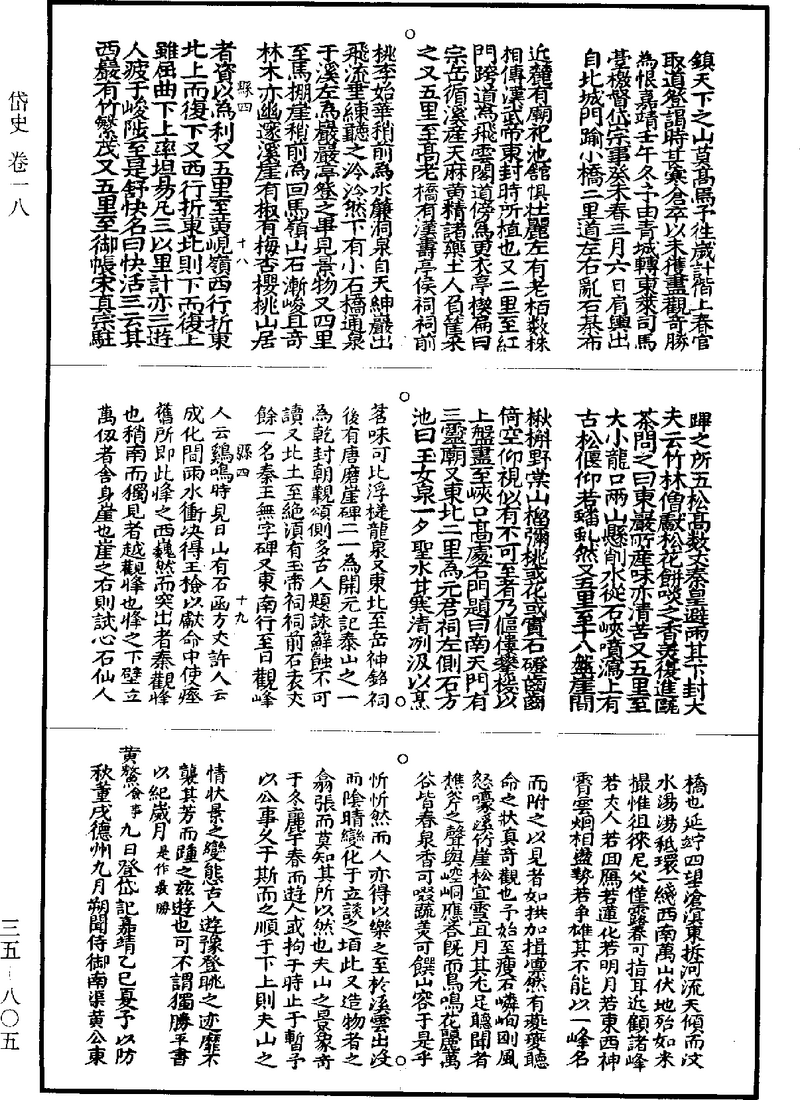 岱史 卷一八
鎮天下之山莫髙焉予往歲計階上春官
取道登謁時甚寒倉卒以未獲盡觀竒勝
為恨嘉靖壬午冬予由青城轉東萊司馬
臺檄督岱宗事癸未春三月六日肩輿出
自北城門踰小橋二里道左右亂石棊布
近麓有廟祀池館俱壯麗左有老栢数株
相傳漢武帝東封時所植也又二里至紅
門跨道為飛雲閣道傍為更衣亭楔扁曰
宗岳循溪產天麻黄精諸藥土人負篚采
之又五里至髙老橋有漢壽亭侯祠祠前
桃李始華稍前為水簾洞泉自天紳巖出
飛流垂練聽之泠泠然下有小石橋通泉
于溪左為巖巖亭登之畢見景物又四里
至馬棚崖稍前為回馬嶺山石漸峻且竒
林木亦幽邃溪崖有椒有梅杏櫻桃山居
縣四
十八
者資以為利又五里至黄峴嶺西行折東
北上而復下又西行折東北則下而復上
雖屈曲下上率坦易凡三以里計亦三遊
人疲于峻陟至是舒快名曰快活三云其
西巖有竹繁茂又五里至御帳宋真宗駐
蹕之所五松髙数丈秦皇避雨其下封大
夫云竹林僧獻松花餅啖之香美復進甌
茶問之曰東巖所産味亦清苦又五里至
大小龍口兩山懸削水從石峽噴瀉上有
古松偃仰若蟠虬然又五里至十八盤崖間
楸槲野棠山榴彌桃或花或實石磴齒齒
倚空仰視似有不可至者乃傴僂攀援以
上盤盡至峽口髙處名門題曰南天門有
三靈廟又東北二里為元君祠左側石方
池曰玉女泉一夕聖水甘寒清冽汲以烹
茗味可比浮槎龍泉又東北至岳神銘祠
後有唐磨崖碑二一為開元記泰山之一
為乾封朝覲頌側多古人題詠蘚蝕不可
讀又北土至絶頂有玉帝祠祠前石表丈
餘一名秦王無字碑又東南行至日觀峰
縣四
十九
人云鷄鳴時見日山有石函方丈許人云
成化間雨水衝決得玉檢以獻命中使瘞
舊所即此峰之西巍然而突出者秦觀峰
也稍南而獨見者越觀峰也峰之下壁立
萬仭者舍身崖也崖之右則試心石仙人
橋也延竚四望滄溟東抵河流天傾而汶
水湯湯秪環一綫西南萬山伏地殆如米
撮惟徂徠尼父僅露春可指耳近顧諸峰
若丈人若回鴈若蓮化若明月若東西神
霄雲烟相盪勢若爭雄其不能以一峰名
而附之以見者如拱加揖凛然有夔夔聽
命之狀真竒觀也予始至瘦石嶙峋剛風
怒嚎溪竹崖松宜雪宜月其尤足聽聞者
樵斧之聲與空峒應荅既而鳥鳴花麗萬
谷皆春泉香可啜蔬美可饌山容于是乎
忻忻然而人亦得以樂之至於溪雲出没
而陰晴變化于立談之頃此又造物者之
翕張而莫知其所以然也夫山之景象竒
于冬麗于春而遊人或拘于時止于暫予
以公事乆于斯而之順于下上則夫山之
情狀景之變態古人遊豫登眺之迹靡不
襲其芳而踵之兹遊也可不謂獨勝乎書
以紀歲月是作最勝
黄鰲僉事九日登岱記嘉靖乙巳夏予以防
秋董戍德州九月朔聞侍御南渠黄公東
三五—八〇五